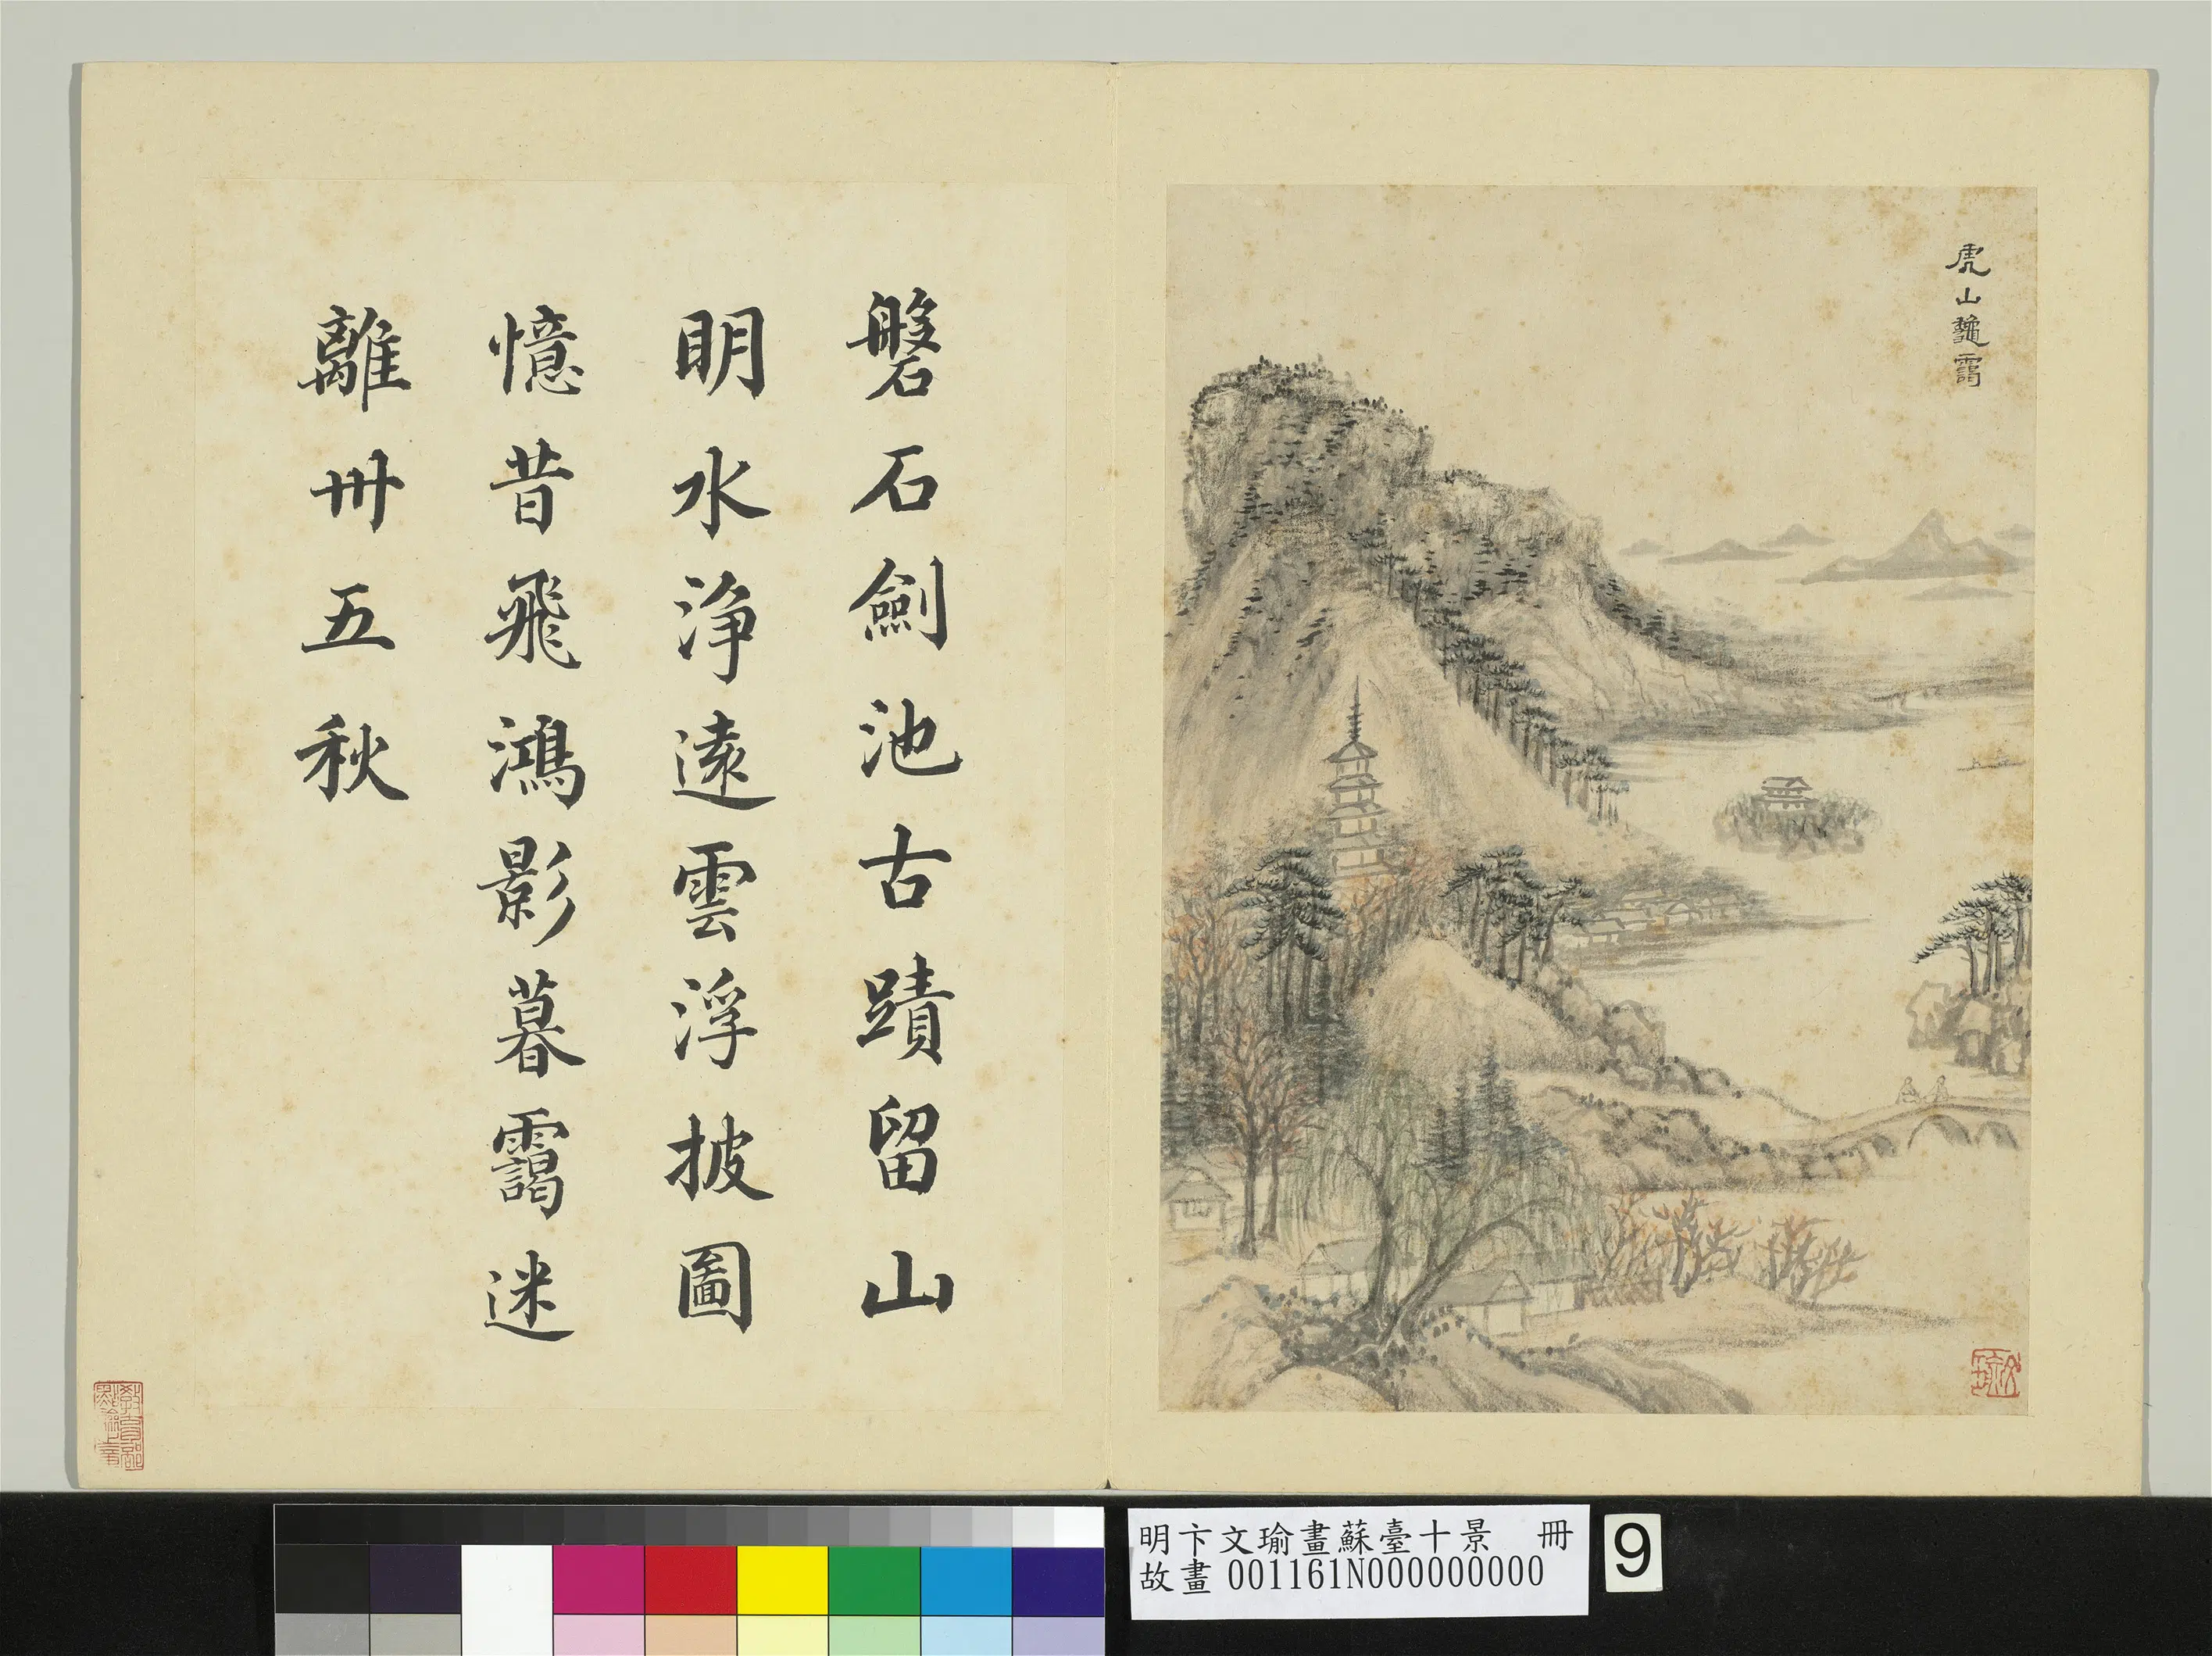 虎山龝靄
磐石劍池古蹟留山
眀水淨遠雲浮披圖
憶昔飛鴻影暮靄迷
離卌五秋
明卞文瑜畫蘇臺十景　冊
故畫 001161N000000000
9